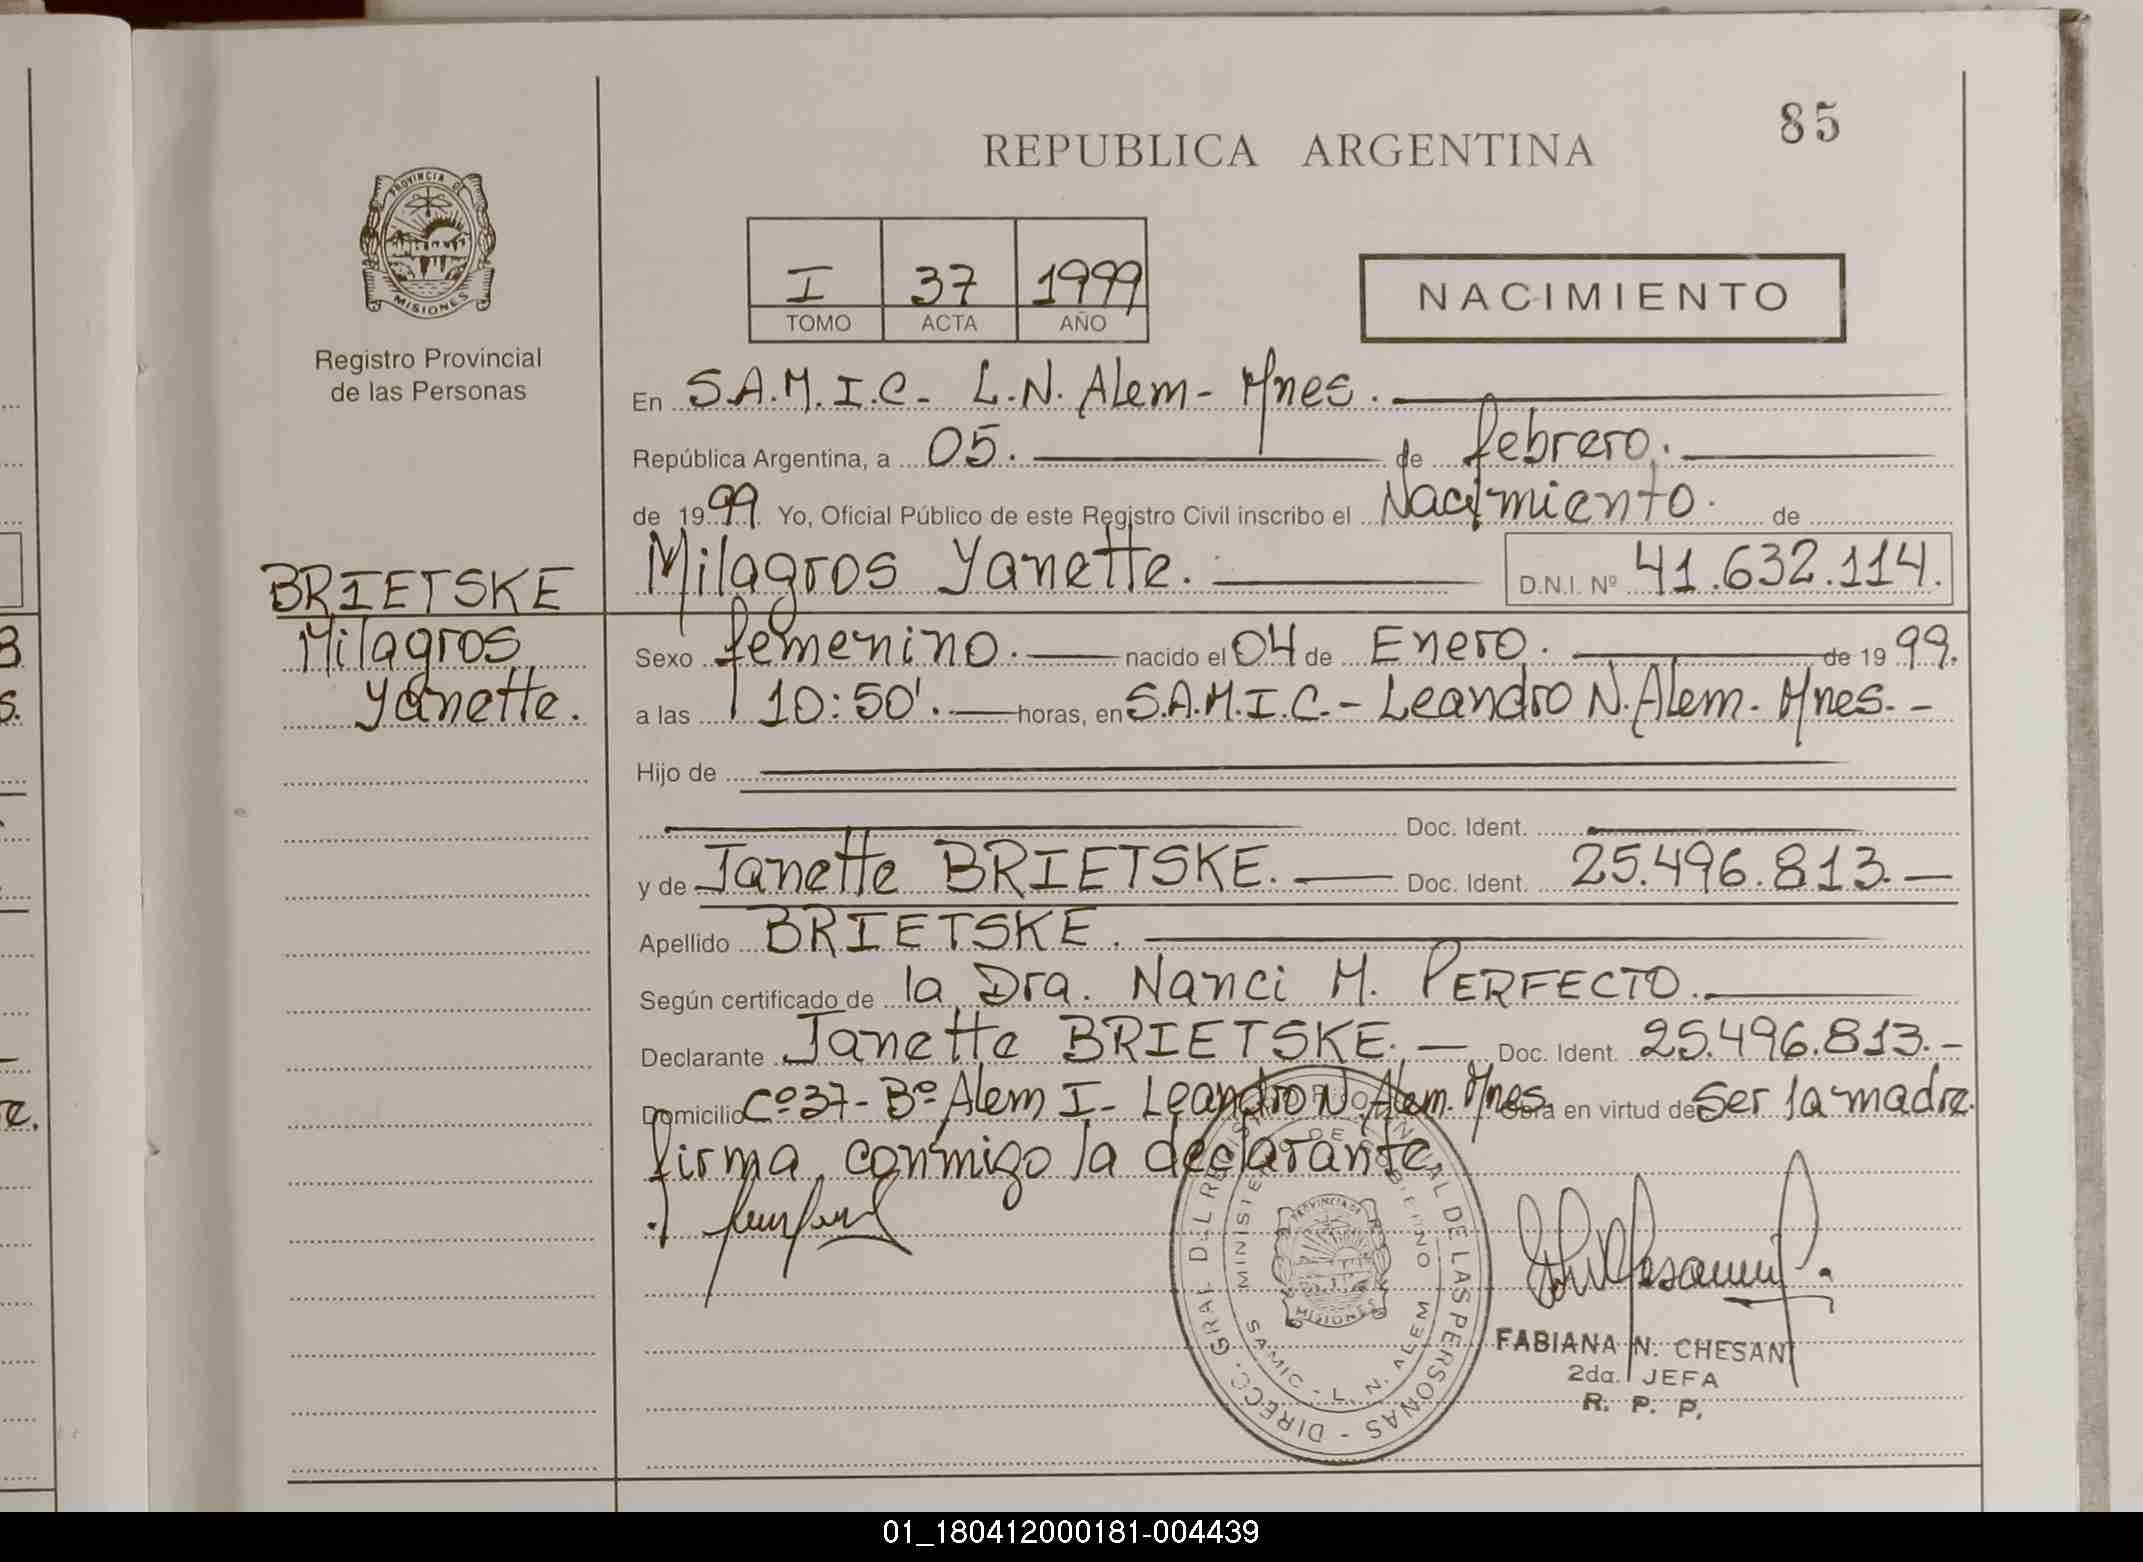 85
REPUBLICA ARGENTINA
PROVINCIA DE
MISIONES
Registro Provincial
de las Personas
I 37 1999
TOMO ACTA AÑO
NACIMIENTO
En S.A.M.I.C.- L.N. Alem- Mnes.
República Argentina, a 05. de febrero.
de 1999 Yo, Oficial Público de este Registro Civil inscribo el Nacimiento. de
Milagros Yanette. D.N.I. Nº 41.632.114.
BRIETSKE
Milagros
Yanette.
Sexo femenino. nacido el 04 de Enero. de 1999.
a las 10:50'. horas, en S.A.M.I.C.- Leandro N. Alem. Mnes.-
Hijo de
Doc. Ident.
y de Janette BRIETSKE. Doc. Ident. 25.496.813.
Apellido BRIETSKE.
Según certificado de la Dra. Nanci M. PERFECTO.
Declarante Janette BRIETSKE. Doc. Ident. 25.496.813.-
Domicilio Cº37- Bº Alem I- Leandro N. Alem. Mnes. Obra en virtud de Ser la madre.
firma conmigo la declarante.
DIRECC. GRAL DEL REGISTRO PROVINCIAL DE LAS PERSONAS -
MINISTERIO DE GOBIERNO
SAMIC - L. N. ALEM
PROVINCIA DE
MISIONES
FABIANA N. CHESANI
2da. JEFA
R. P. P.
01_180412000181-004439